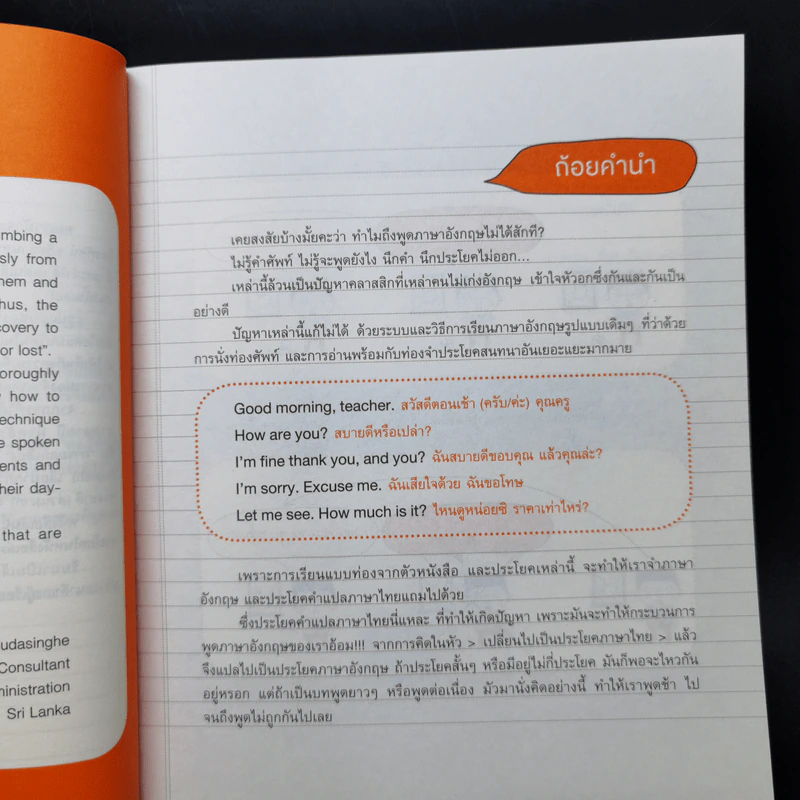 mbing a
sly from
hem and
hus, the
covery to
or lost".
oroughly
how to
echnique
e spoken
ents and
their day-
that are
udasinghe
Consultant
ministration
Sri Lanka
ถ้อยคำนำ
เคยสงสัยบ้างมั้ยคะว่า ทำไมถึงพูดภาษาอังกฤษไม่ได้สักที?
ไม่รู้คำศัพท์ ไม่รู้จะพูดยังไง นึกคำ นึกประโยคไม่ออก...
เหล่านี้ล้วนเป็นปัญหาคลาสสิกที่เหล่าคนไม่เก่งอังกฤษ เข้าใจหัวอกซึ่งกันและกันเป็น
อย่างดี
ปัญหาเหล่านี้แก้ไม่ได้ ด้วยระบบและวิธีการเรียนภาษาอังกฤษรูปแบบเดิมๆ ที่ว่าด้วย
การนั่งท่องศัพท์ และการอ่านพร้อมกับท่องจำประโยคสนทนาอันเยอะแยะมากมาย
Good morning, teacher. สวัสดีตอนเช้า (ครับ/ค่ะ) คุณครู
How are you? สบายดีหรือเปล่า?
I'm fine thank you, and you? ฉันสบายดีขอบคุณ แล้วคุณล่ะ?
I'm sorry. Excuse me. ฉันเสียใจด้วย ฉันขอโทษ
Let me see. How much is it? ไหนดูหน่อยซิ ราคาเท่าไหร่?
เพราะการเรียนแบบท่องจากตัวหนังสือ และประโยคเหล่านี้ จะทำให้เราจำภาษา
อังกฤษ และประโยคคำแปลภาษาไทยแถมไปด้วย
ซึ่งประโยคคำแปลภาษาไทยนี่แหละ ที่ทำให้เกิดปัญหา เพราะมันจะทำให้กระบวนการ
พูดภาษาอังกฤษของเราอ้อม!!! จากการคิดในหัว > เปลี่ยนไปเป็นประโยคภาษาไทย > แล้ว
จึงแปลไปเป็นประโยคภาษาอังกฤษ ถ้าประโยคสั้นๆ หรือมีอยู่ไม่กี่ประโยค มันก็พอจะไหวกัน
อยู่หรอก แต่ถ้าเป็นบทพูดยาวๆ หรือพูดต่อเนื่อง มัวมานั่งคิดอย่างนี้ ทำให้เราพูดช้า ไป
จนถึงพูดไม่ถูกกันไปเลย